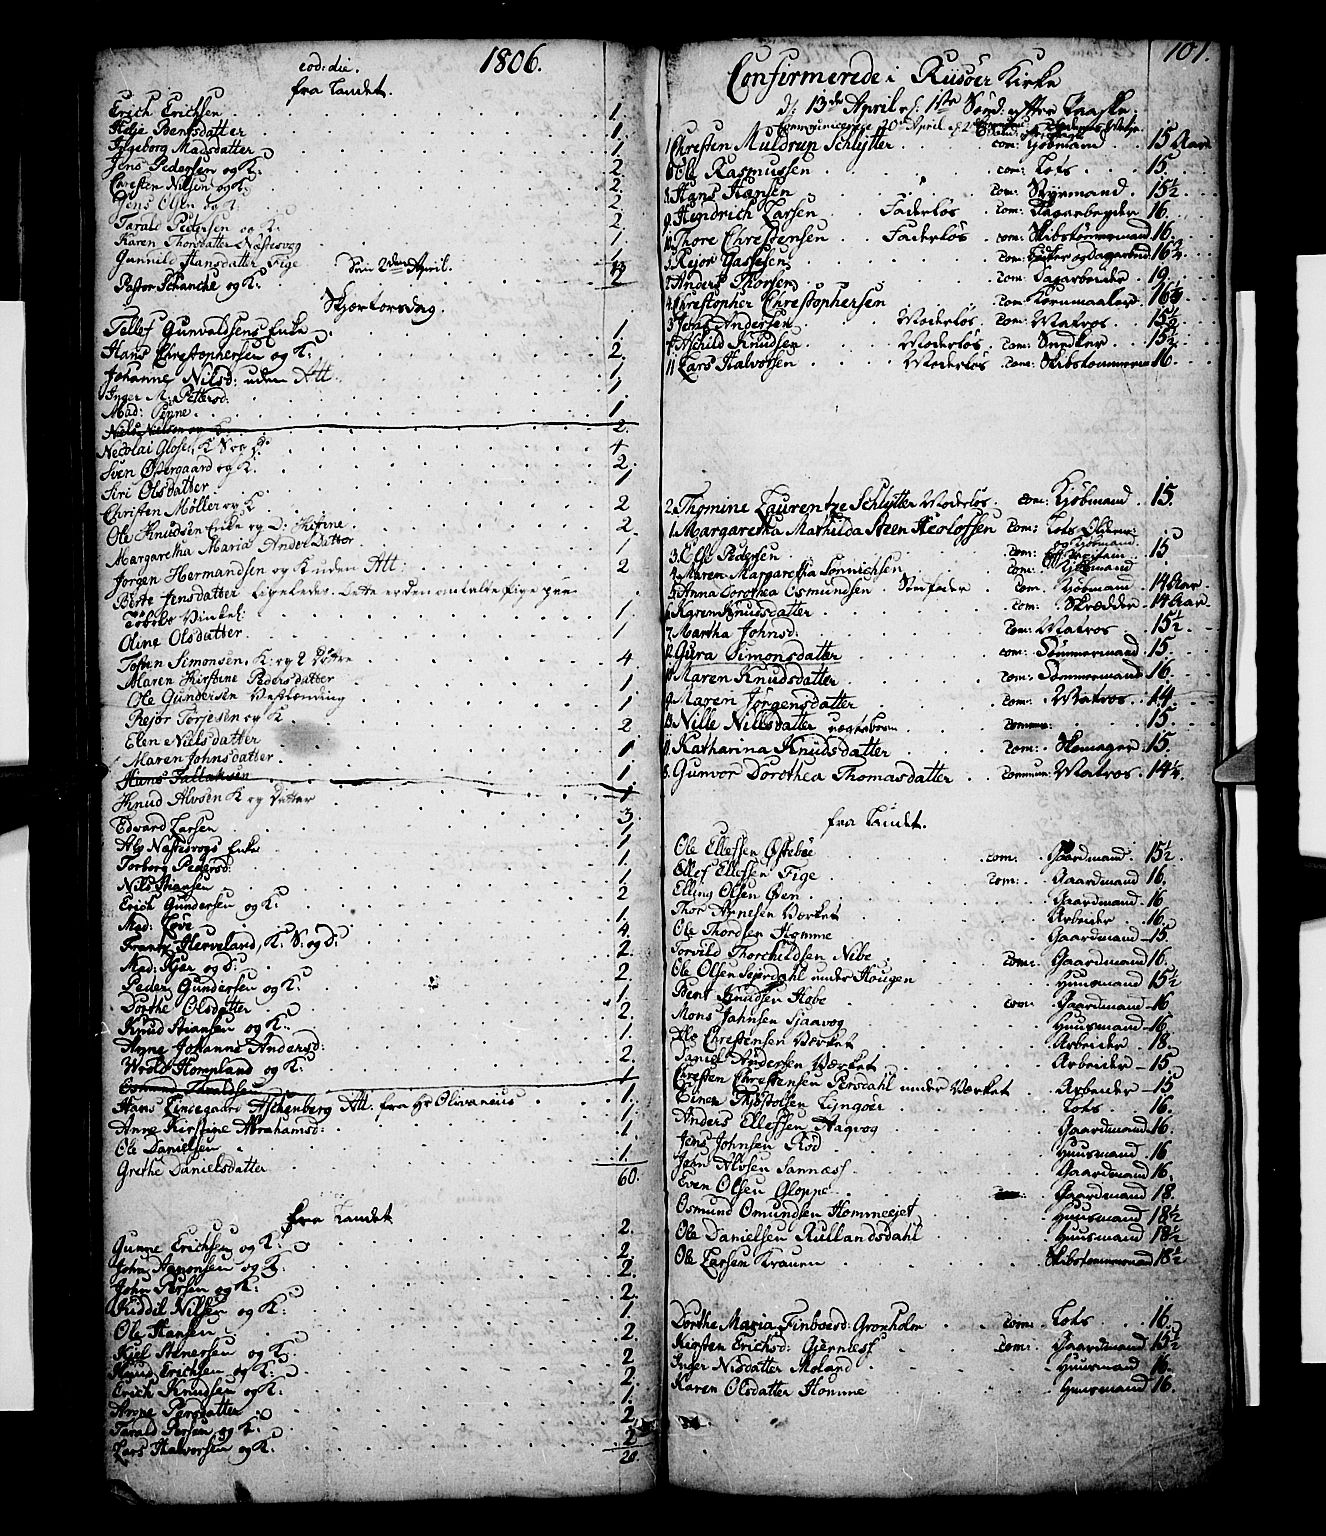 1806.
eod: die.
fra Landet.
Erich Erichsen 1.
Helje Bentsdatter 1.
Ingeborg Madsdatter 1
Jens Pedersen og K: 2.
Christen Nilsen og K: 2.
Jens Olsen og K. 2
Tarald Pedersen og K: 2
Karen Thorsdatter Næstesvog 1
Gunnild Hansdatter Fige 1
Pastor Schanche og K: 2
Den 2den April.
Skjertorsdag.
Tellef Gunvaldsens Enke 1.
Hans Christophersen og K: 2.
Johanne Nilsd: uden Att. 1
Inger M: Pettersd: 1.
Mad: Penne 1
Niels Nielsen og K 2.
Necolai Closter, K S og D: 4
Sven Østergaard og K. 2.
Siri Olsdatter 1
Christen Möller og K 2
Ole Knudsen Enke og D: Kistine 2.
Margaretha Maria AndersDatter 1
Jörgen Hermandsen og K uden Att: 2
Berte Jensdatter
1
Oline Olsdatter 1
Tosten Simonsen. K: og 2 Döttre 4
Maren Kirstine Pedersdatter 1
Ole Gundersen Vestlending 1.
Rejor Torjesen og K 2
Elen Nielsdatter 1
Maren Johnsdatter 1.
Hans Tallaksen 1
Knud Alvsen K og Datter 3.
Edvard Larsen 1
Alv Næstesvogs Enke 1.
Torborg Pedersd: 1.
Nils Stiansen 2
Erich Gundersen og K: 1.
Mad: Löve 4.
Frantz Herveland, K. S. og D: 2.
Mad: Kjær og D: 2
Peder Gundersen og K: 1.
Dorthe Olsdatter 2.
Knud Stiansen og K: 1.
Anne Johanne Andersd: 2.
Wrold Hompland og K: 1
Hans Lindegaard Aschenberg Att. fra Hr Olivarius 1.
Anne Kirstine Abrahamsd: 1.
Ole Danielsen 1.
Grethe Danielsdatter
60.
fra Landet
Gunne Erichsen og K: 2.
John Aanonsen og K: 2.
John Persen og K: 2.
Kiddil Nilsen og K: 2.
Ole Hansen 1.
Kiel Abnersen og K: 2.
Knud Erichsen og K: 2
Erich Knudsen og K: 2
Anne Persdatter 1.
Tarald Persen og K: 2
Lars Halvorsen og K: 2
20.
101.
Confirmerede i Riisöer Kirke
d: 13de April e: 1ste Sönd: efter Paaske.
1 Chresten Muldrup Schlytter com: Kjöbmand 15 Aar
6 Ole Rasmussen com: Lots 15.
8 Hans Hansen com: Styrmand. 15½
9 Hendrich Larsen Faderlös com: Sagarbeyder 16.
10 Thore Chrestensen Faderlös com: Skibstömmermand 16.
5 Rejor Gassesen com: 16¾
7 Anders Thorsen com: Sagarbeider 19
4 Christopher Christophersen com: Kornmaaler 16¼
3 Jens Andersen Moderlös com: Matros 15½
Aschild Knudsen Moderlös com: Snedker. 15½
11 Lars Halvorsen Moderlös com: Skibstömmerm 16.
2. Thomine Laurentze Schlytter Moderlös com: Kjöbmand 15.
1. Margaretha Mathilda Steen Herloffsen com: Lots Olderm: og Kjöbmand
3. Else Pedersen com: 15
Maren Margaretha Sönnichsen com: Kjöbmand
5 Anna Dorothea Osmundsen com. Kjöbmand 14 Aar.
6 Karen Knudsdatter com: Skrædder 14 Aar
7 Martha Johnsd. com: Matros 15½
12 Gura Simonsdatter com: Tömmermand 15.
Maren Knudsdatter com: Tömmermand 16.
9 Maren Jörgensdatter com: Matros 14.
13 Nille Nillsdatter uægtebarn commun: 15.
11 Katharina Knudsdatter com: Skomager 15.
8. Gunvor Dorothea Thomasdatter commun: Matros 14¼.
fra Landet.
Ole Ellefsen Østeböe com. Gaardmand. 15½.
Ellef Ellefsen Fige com: Gaardmand 16.
Elling Olsen Øven Gaardmand 16.
Thor Arnesen Værket Arbeider 16.
Ole Thordsen Homme Gaardmand 15
Torvild Thorchildsen Nibe com: Gaardmand 16.
Ole Olsen Seierdahl under Hougen Huusmand 15½
Bent Knudsen Habe com: Gaardmand 16
Mons Jahnsen Sjaavog Huusmand 16
Ole Christensen Værket Arbeider 18.
Daniel Andersen Værket Arbeider 15
Christen Christensen Persdahl under Værket Arbeider 15
Einer Thostolsen Lyngöer Lots 16.
Anders Ellefsen Aaqvog Gaardmand 16.
Jens Johnsen Röd Huusmand 16
John Alvsen Sannæss Gaardmand 16.
Even Olsen Gloppe Gaardmand 18.
Osmund Omundsen Hommeejet Huusmand 18½
Ole Danielsen Rullandsdahl Huusmand 18½
Ole Larsen Kranen Skibstömmermand 18½
Dorthe Maria Finboesd: Gronholm com: Lots 16.
Kirsten Erichsd: Gjernæss com: Gaardmand 15½
Inger Nisdatter Moland Huusmand 16.
Karen Olsdatter Homme Huusmand 16.